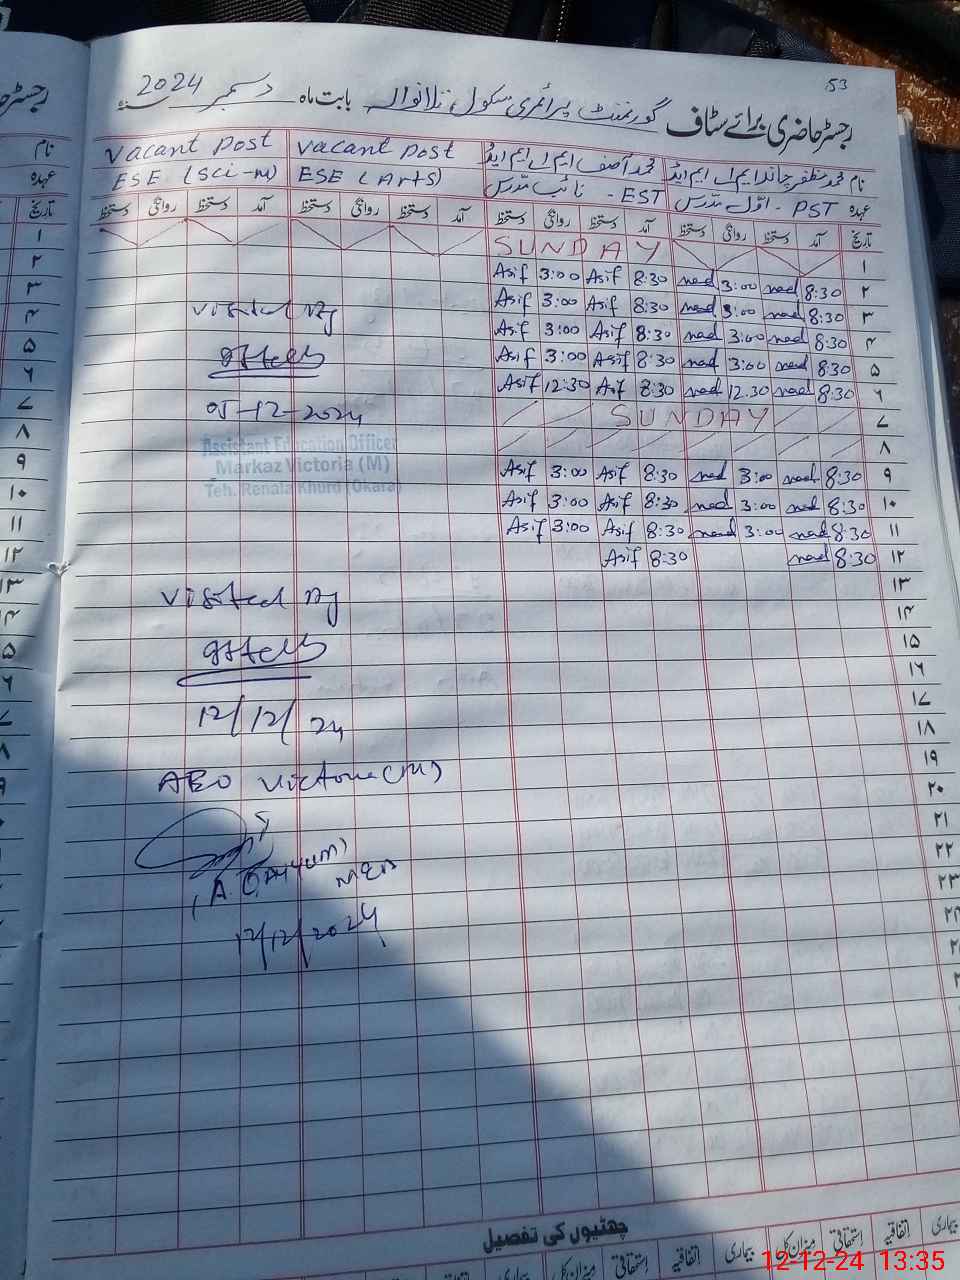 53
رجسٹر حاضری برائے سٹاف گورنمنٹ پرائمری سکول بابت ماہ دسمبر سنہ 2024
نام محمد مظفر چاند ایم اے ایم ایڈ محمد آصف ایم اے ایم ایڈ Vacant post Vacant post
عہدہ PST - اوّل مدرس EST - نائب مدرس ESE (Arts) ESE (Sci-M)
تاریخ آمد دستخط روانگی دستخط آمد دستخط روانگی دستخط آمد دستخط روانگی دستخط آمد دستخط روانگی دستخط
۱ SUNDAY
۲ 8:30 3:00 8:30 Asif 3:00 Asif
۳ 8:30 3:00 8:30 Asif 3:00 Asif
۴ 8:30 3:00 8:30 Asif 3:00 Asif
۵ 8:30 3:00 8:30 Asif 3:00 Asif
۶ 8:30 12.30 8:30 Asif 12:30 Asif
۷ SUNDAY
۸
۹ 8:30 3:00 8:30 Asif 3:00 Asif
۱۰ 8:30 3:00 8:30 Asif 3:00 Asif
۱۱ 8:30 3:00 8:30 Asif 3:00 Asif
۱۲ 8:30 8:30 Asif
۱۳
۱۴
۱۵
۱۶
۱۷
۱۸
۱۹
۲۰
۲۱
۲۲
۲۳
visited by
05-12-2024
Assistant Education Officer
Markaz Victoria (M)
Teh. Renala Khurd (Okara)
visited by
12/12/24
AEO Victoria (M)
(A. Qayyum)
MEA
12/12/2024
چھٹیوں کی تفصیل
بیماری اتفاقیہ استحقاقی میزان کل بیماری اتفاقیہ استحقاقی میزان کل بیماری
12-12-24 13:35